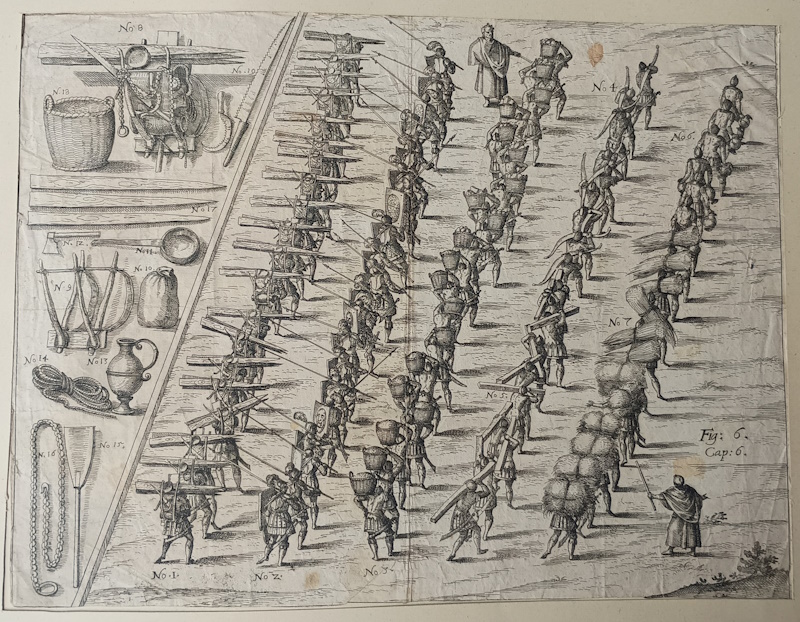 No 8
N. 18
N. 17
N. 12.
No 11.
N. 9
N. 10
No 14
No 13
No 15.
N. 16
No. 4.
No 6.
No 7.
No 5.
Fig: 6.
Cap: 6.
No. 1.
No 2.
No 3.